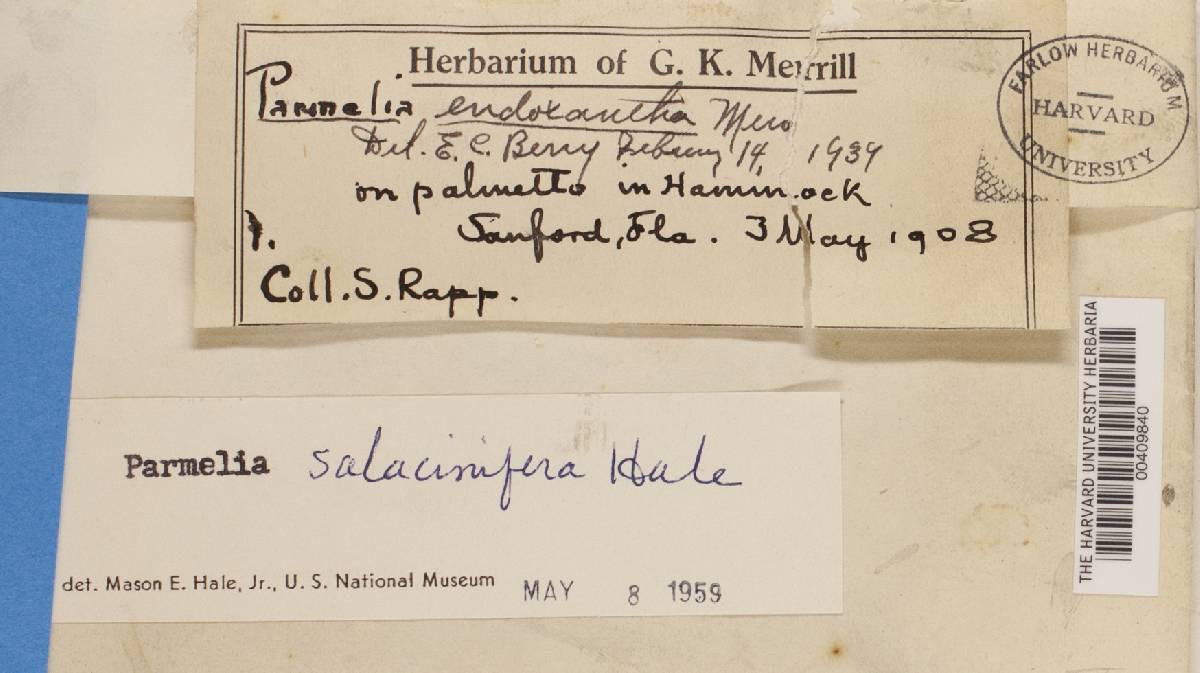 Herbarium of G. K. Merrill
Parmelia endoxantha Merr
Det. E. C. Berry February 14, 1939
on palmetto in Hammock
Sanford, Fla. 3 May 1908
Coll. S. Rapp.
FARLOW HERBARIUM
HARVARD
UNIVERSITY
Parmelia salacinifera Hale
det. Mason E. Hale, Jr., U. S. National Museum MAY 8 1959
THE HARVARD UNIVERSITY HERBARIA
00409840